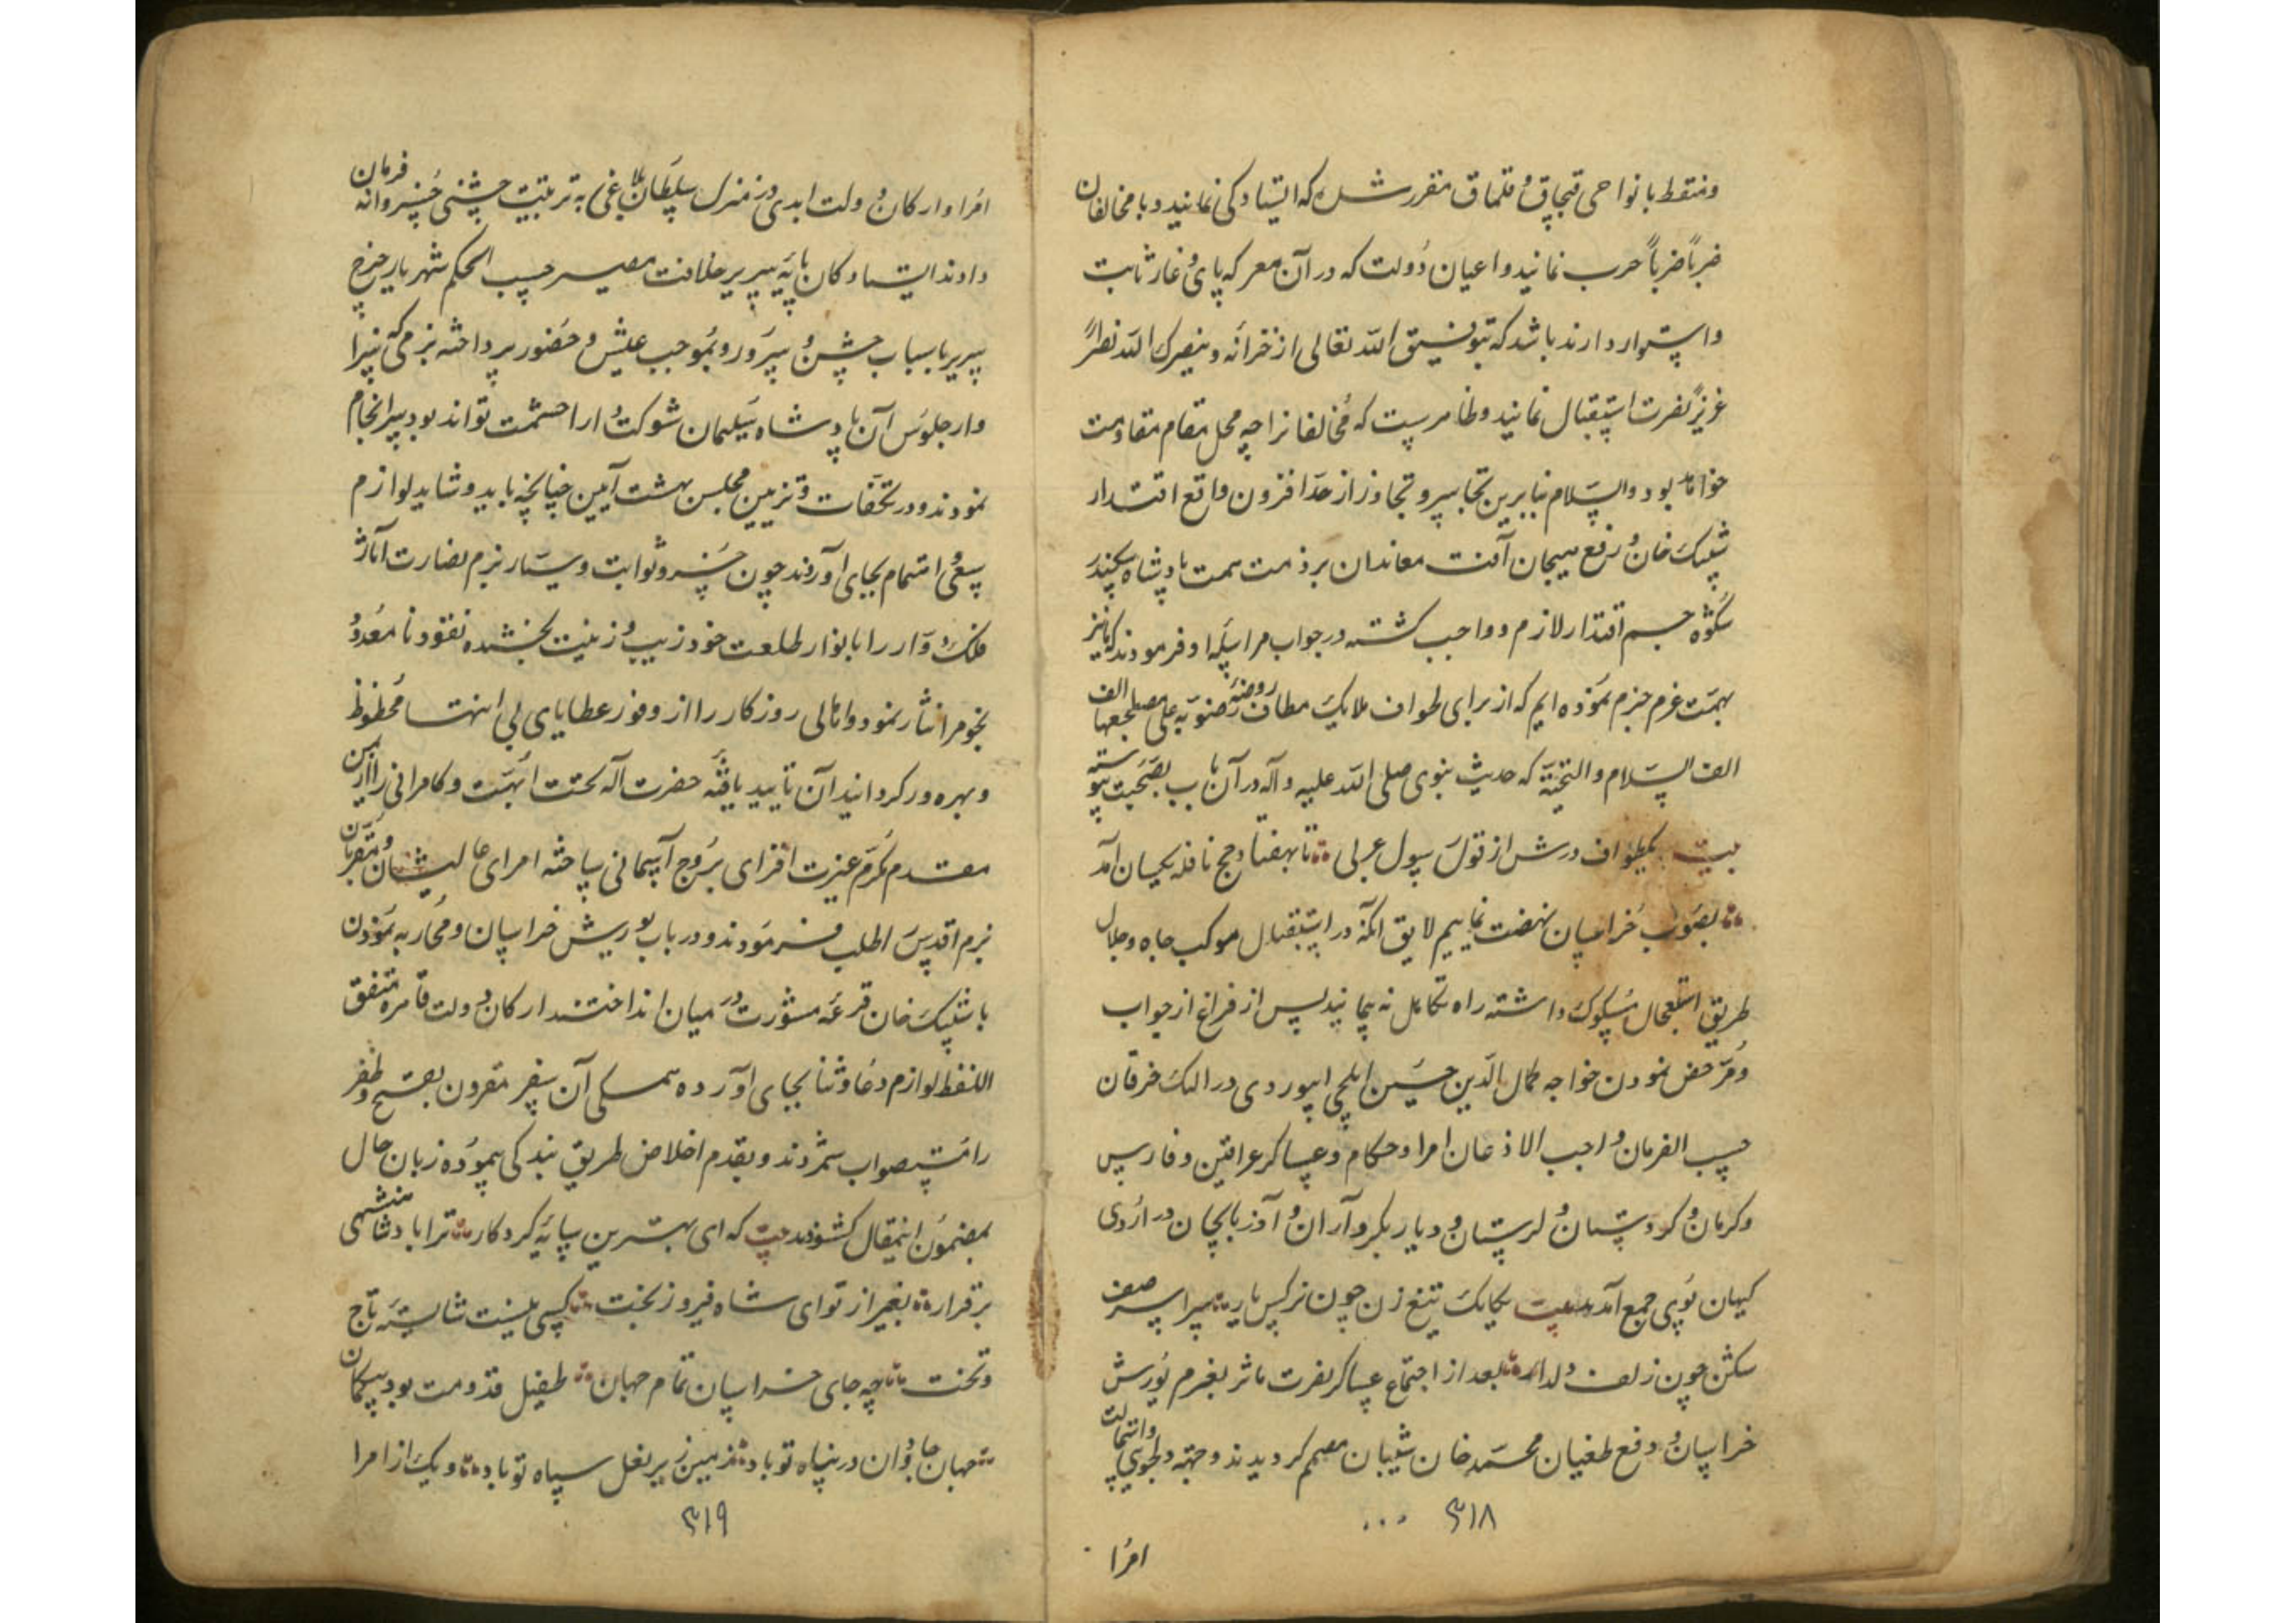 ومنقط با نواحی قبچاق و قلماق مقرر شد که ایستادگی نمایند و با مخالفان
ضرباً ضرباً حرب نمایند و اعیان دولت که در آن معرکه پای وغا ثابت
و استوار دارند باشد که بتوفیق الله تعالی از خزانه و ینصرک الله نصراً
عزیزاً نصرت استقبال نمایند و ظاهرست که مخالفانرا چه محل مقام مقاومت
خواهد بود والسلام بنابرین تجاسر و تجاوز از حد افزون واقع اقتدار
شیبک خان و رفع هیجان آفت معاندان بر ذمت همت پادشاه سکندر
شکوه جم اقتدار لازم و واجب گشته در جواب مراسله او فرمودند که ما نیز
بهمت عزم جزم نموده ایم که از برای طواف ملایک مطاف روضه رضویه علی مصلحعها الف
الف السلام والتحیة که حدیث نبوی صلی الله علیه وآله در آن باب بصحت پیوسته
بیت یکطواف درش از قول رسول عربی تا بهفتاد حج نافله یکسان آمد
بصوب خراسان نهضت نماییم لایق آنکه در استقبال موکب جاه و جلال
طریق استعجال مسلوک داشته راه تکاهل نه پیمایند پس از فراغ از جواب
و مرخص نمودن خواجه کمال الدین حسین ایلچی ابیوردی در النک خرقان
حسب الفرمان واجب الاذعان امرا و حکام و عساکر عراقین و فارس
و کرمان و کردستان و لرستان و دیار بکر و آران و آذربایجان در اردوی
کیهان پوی جمع آمدند بیت یکایک تیغ زن چون نرگس یار سراسر صف
شکن چون زلف دلدار بعد از اجتماع عساکر نصرت ماثر بعزم یورش
خراسان و دفع طغیان محمد خان شیبان مصمم گردیدند و جهة دلجویی و استمالت
۳۱۸
امرا
امرا و ارکان دولت ابدی در منزل سلطان بلاغی به ترتیب جشنی خسروانه فرمان
دادند ایستادکان پایه سریر خلافت مصیر حسب الحکم شهریار چرخ
سریر باسباب جشن و سرور و بموجب عیش و حضور پرداخته بزمی که سزا
وار جلوس آن پادشاه سلیمان شوکت دارا حشمت تواند بود سرانجام
نمودند و در تکلفات و تزیین مجلس بهشت آیین چنانچه باید و شاید لوازم
سعی و اهتمام بجای آوردند چون خسرو ثوابت و سیار بزم نضارت آثار
فلک دوار را بانوار طلعت خود زیب و زینت بخشده نقود نا معدود
نجوم را نثار نمود و اهالی روزکار را از وفور عطایای بی انتها محظوظ
و بهره ور کردانید آن تایید یافته حضرت اله تخت ابهت و کامرانی را از این
مقدم مکرم عزت افزای بروج آسمانی ساخته امرای عالیشان و مقربان
بزم اقدس را طلب فرمودند و در باب یورش خراسان و محاربه نمودن
با شیبک خان قرعه مشورت در میان انداختند ارکان دولت قاهره متفق
اللفظ لوازم دعا و ثنا بجای آورده همگی آن سفر مقرون بفتح و ظفر
را مستصواب شمردند و بقدم اخلاص طریق بندگی پیموده زبان حال
بمضمون این مقال کشودند بیت که ای بهترین سایه کردکار ترا باد شاهنشهی
برقرار بغیر از تو ای شاه فیروز بخت کسی نیست شایسته تاج
و تخت چه جای خراسان تمام جهان طفیل قدومت بود بیکمان
جهان جاودان در پناه تو باد زمین زیر نعل سپاه تو باد و یک از امرا
۳۱۹